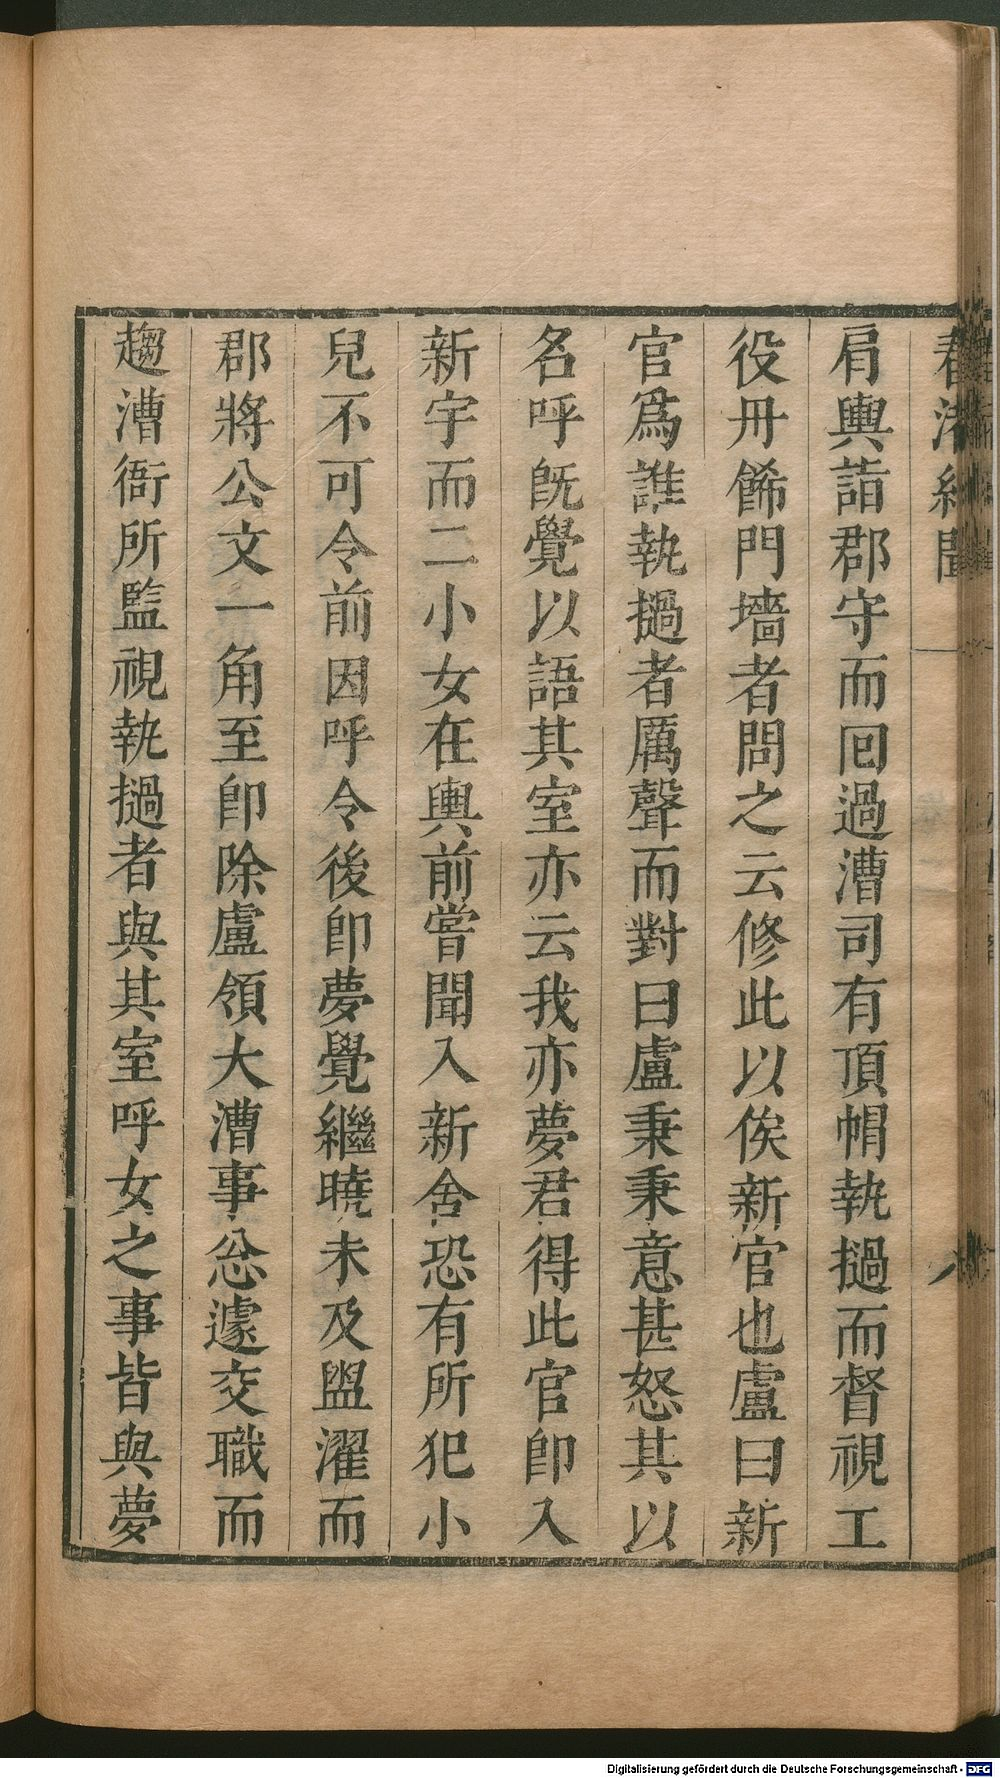 春渚紀聞
肩輿詣郡守而囘過漕司有頂帽執撾而督視工
役冊餙門墻者問之云修此以俟新官也盧曰新
官爲誰執撾者厲聲而對曰盧秉秉意甚怒其以
名呼旣覺以語其室亦云我亦夢君得此官卽入
新宇而二小女在輿前嘗聞入新舍恐有所犯小
兒不可令前因呼令後卽夢覺繼曉未及盥濯而
郡將公文一角至卽除盧領大漕事忩遽交職而
趨漕衙所監視執撾者與其室呼女之事皆與夢
Digitalisierung gefördert durch die Deutsche Forschungsgemeinschaft - DFG